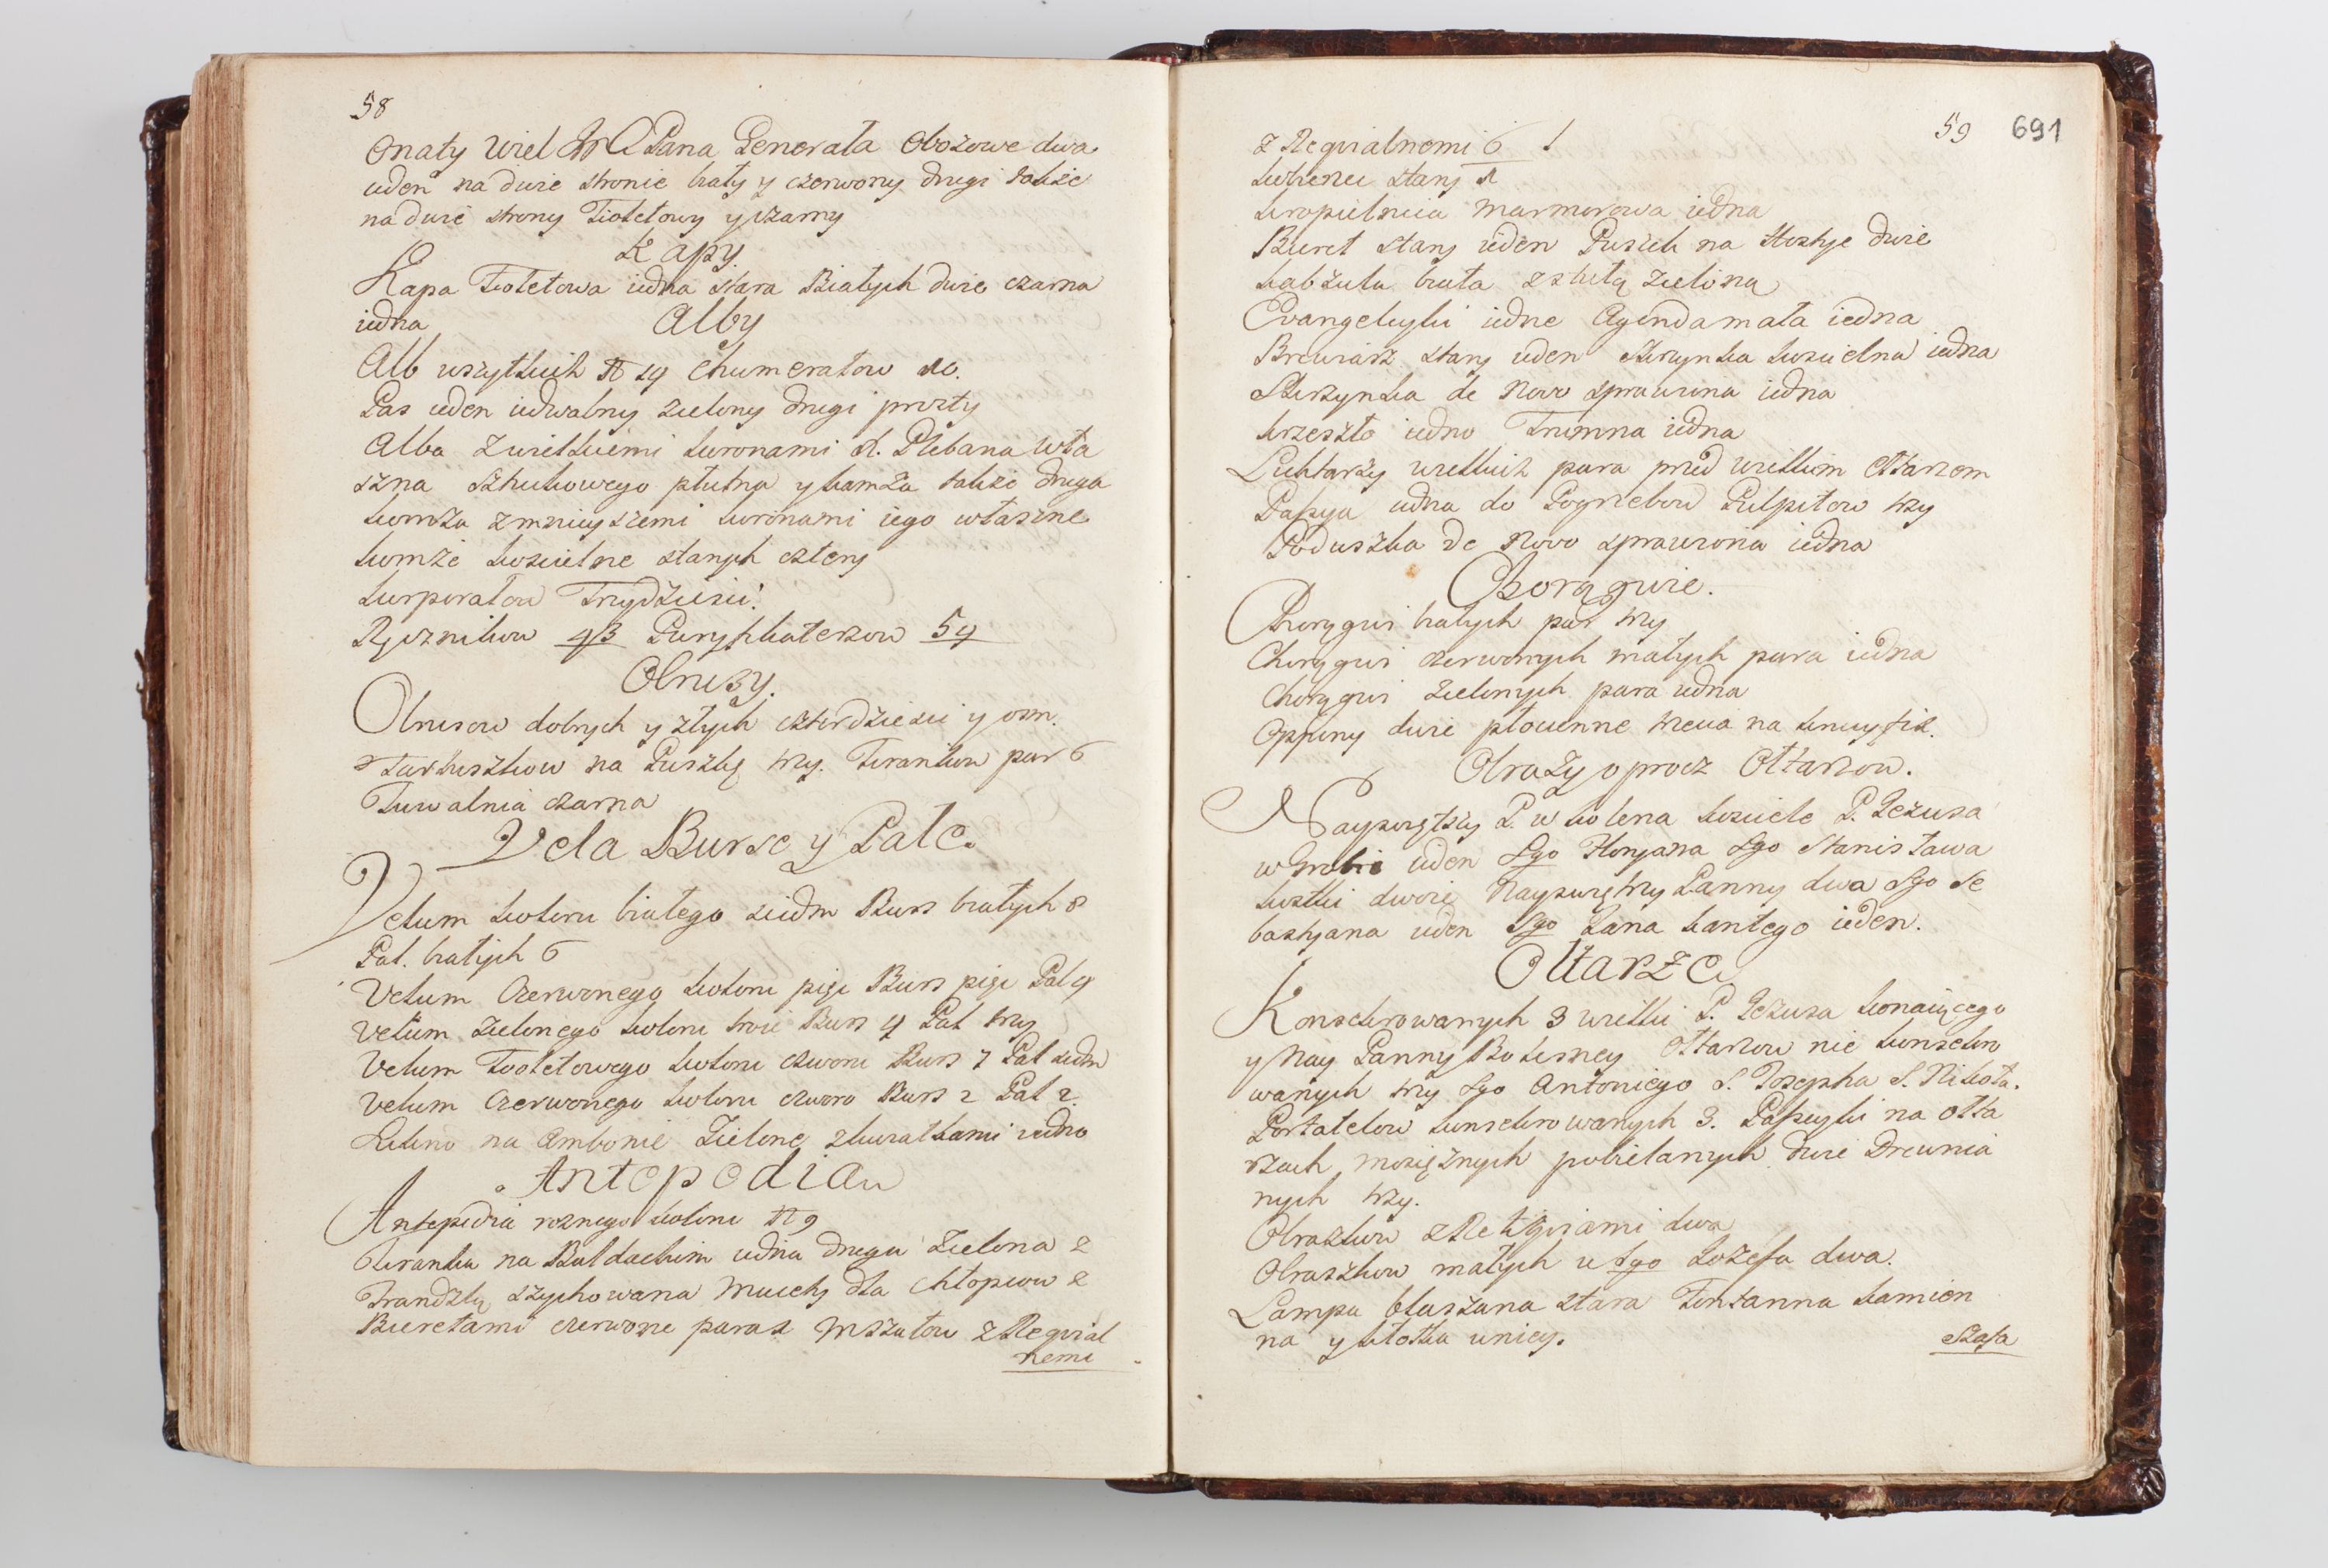 58
Ornaty Wiel Pana Generała Obozowe dwa
ieden na dwie stronie biały y czerwony drugi także
na dwie strony Fioletowy y czarny
Kapy.
Kapa Fioletowa iedna stara Białych dwie czarna
iedna
Alby
Alb wszytkich N 14 Chumerałow 10.
Pas ieden iedwabny zielony drugi prosty
Alba z wielkiemi koronami X. Plebana wła
szna Sztukowego płutna y kamża także druga
komża z mnieyszemi koronami iego właszne
komże koscielne starych cztery
Kurporałow Trzydziesci.
Ręcznikow 43 Puryfikaterzow 54
Obrusy.
Obrusow dobrych y złych czterdziesci y osm.
Fartuszkow na Puszkę trzy. Firankow par 6
Tuwalnia czarna
Vela Burse y Pale.
Velum koloru białego siedm Burs białych 8
Pal. białych 6
Velum Czerwonego koloru pięć Burs pięć Pal 4
Velum Zielonego koloru troie Burs 4 Pal trzy
Velum Fioletowego koloru czworo Burs 7 Pal siedm
Velum Czerwonego koloru czworo Burs 2 Pal 2.
Sukno na Ambonie Zielone z kwiatkami iedno
Antepedia
Antepedia roznego koloru N 9
Firanka na Baldachim iedna druga Zielona z
Frandzlą szychowana Mucety dla Chłopcow z
Bieretami czerwone para 1 Mszałow z Requial
nemi
59 691
z Requialnemi 6
kubenec stary 1
kropielnica Marmorowa iedna
Biret stary ieden Puszek na Hostye dwie
kabzula biała z stułą zieloną
Evangeliyki iedne Agenda mała iedna
Brewiarz stary ieden Skrzynka koscielna iedna
Skrzynka de Novo sprawiona iedna
krzeszło iedno Trumna iedna
Lichtarzy wielkich para przed wielkim Ołtarzem
Passya iedna do Pogrzebow Pulpitow trzy
Poduszka de Novo sprawiona iedna
Chorągwie.
Chorągwi białych par trzy
Chorągwi czerwonych małych para iedna
Chorągwi zielonych para iedna
Oppony dwie płocienne trzecia na krucyfix.
Obrazy oprocz Ołtarzow.
Nayswiętszy P. w kolo kosciele P. Jezusa
w Grobie ieden Sgo Floryana Sgo Stanisława
kostki dwoie Nayswiętszy Panny dwa Sgo Se
bastyana ieden Sgo Jana kantego ieden.
Ołtarze
Konsekrowanych 3 wielki P. Jezusa konaiącego
y Nay Panny Bolesney Ołtarzow nie konsekro
wanych trzy Sgo Antoniego S. Josepha S. Nikola.
Portatelow konsekrowanych 3. Passyiki na Ołta
rzach mosiężnych pobielanych dwie Drewnia
nych trzy.
Obrazkow z Reliqviami dwa
Obraszkow małych u Sgo Jozefa dwa.
Lampa blaszana stara Fontanna kamien
na y kłotka u niey.
Szafa